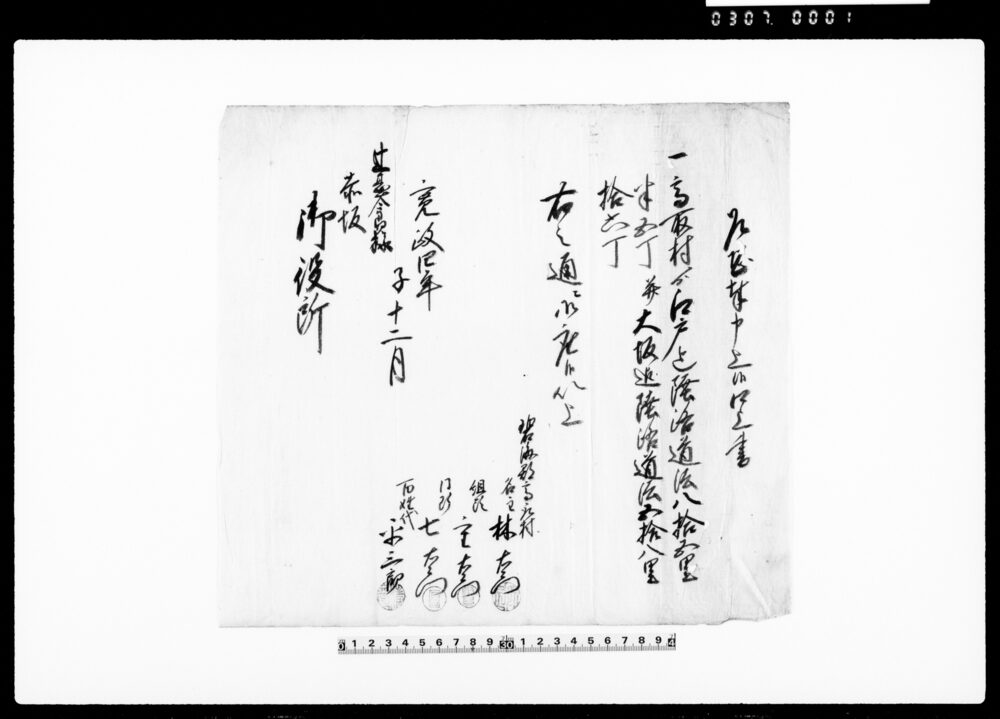 0307 0001
乍恐奉申上候口上書
一高取村ゟ江戸迄陸路道法八拾五里
半五丁并大坂迄陸路道法五拾八里
拾六丁
右之通ニ御座候以上
碧海郡高取村
名主 林右衛門
組頭 重右衛門
同断 七右衛門
百姓代 平三郎
寛政四年
子十二月
辻甚太郎様
赤坂
御役所
0 1 2 3 4 5 6 7 8 9 30 1 2 3 4 5 6 7 8 9 4